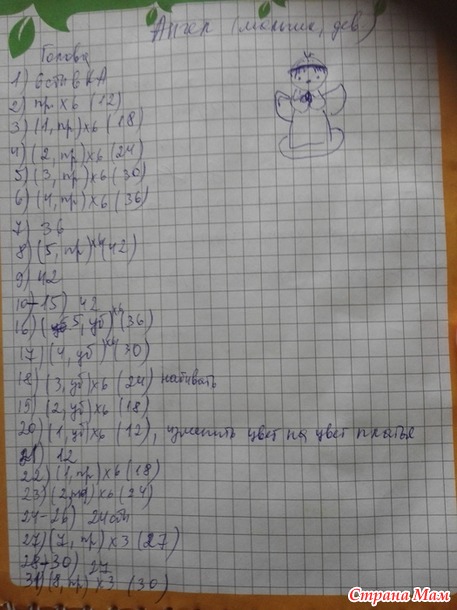 Ангел (мальчик, дев)
Голова
1) 6 стбн в КА
2) пр х6 (12)
3) (1, пр)х6 (18)
4) (2, пр)х6 (24)
5) (3, пр)х6 (30)
6) (4, пр)х6 (36)
7) 36
8) (5, пр)х6(42)
9) 42
10-15) 42
16) (5, уб)х6 (36)
17) (4, уб)х6 (30)
18) (3, уб)х6 (24) набивать
19) (2, уб)х6 (18)
20) (1, уб)х6 (12), изменить цвет на цвет платья
21) 12
22) (1, пр)х6 (18)
23) (2, пр)х6 (24)
24-26) 24
27) (7, пр)х3 (27)
28-30) 27
31) (8, пр)х3 (30)
Страна Мам